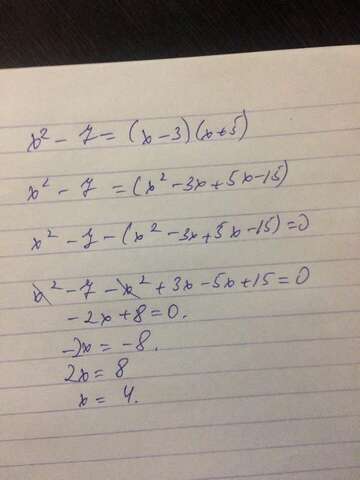 x² - 7 = (x - 3)(x + 5)
x² - 7 = (x² - 3x + 5x - 15)
x² - 7 - (x² - 3x + 5x - 15) = 0
x² - 7 - x² + 3x - 5x + 15 = 0
-2x + 8 = 0.
-2x = -8.
2x = 8
x = 4.